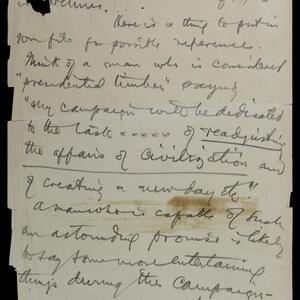 Here is a thing to put in
your file for possible reference.
Think of a man who is considered
"presidential timber" saying
"my campaign will be dedicated
to the task x x x x x of readjusting
the affairs of civilization and
of creating a new day etc."
A man who is capable of such
an astounding promise is likely
to say some more entertaining
things during the campaign—